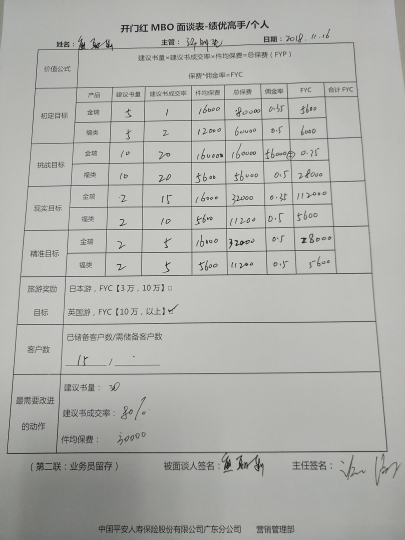 开门红 MBO 面谈表-绩优高手/个人
姓名： 主管： 日期：2018.11.16
价值公式 建议书量×建议书成交率×件均保费=总保费（FYP）
保费*佣金率=FYC
产品 建议书量 建议书成交率 件均保费 总保费 佣金率 FYC 合计 FYC
初定目标 金瑞 5 1 16000 80000 0.35 5600
福类 5 2 12000 60000 0.5 6000
挑战目标 金瑞 10 20 160000 160000 56000 0.35
福类 10 20 5600 56000 0.5 28000
现实目标 金瑞 2 15 16000 32000 0.35 112000
福类 2 10 5600 11200 0.5 5600
精准目标 金瑞 2 5 16000 32000 0.5 28000
福类 2 5 5600 11200 0.5 5600
旅游奖励目标 日本游，FYC【3 万，10 万】□
英国游，FYC【10 万，以上】☑
客户数 已储备客户数/需储备客户数
15 /
最需要改进的动作 建议书量：20
建议书成交率：80%
件均保费：30000
（第二联：业务员留存） 被面谈人签名： 主任签名：
中国平安人寿保险股份有限公司广东分公司 营销管理部